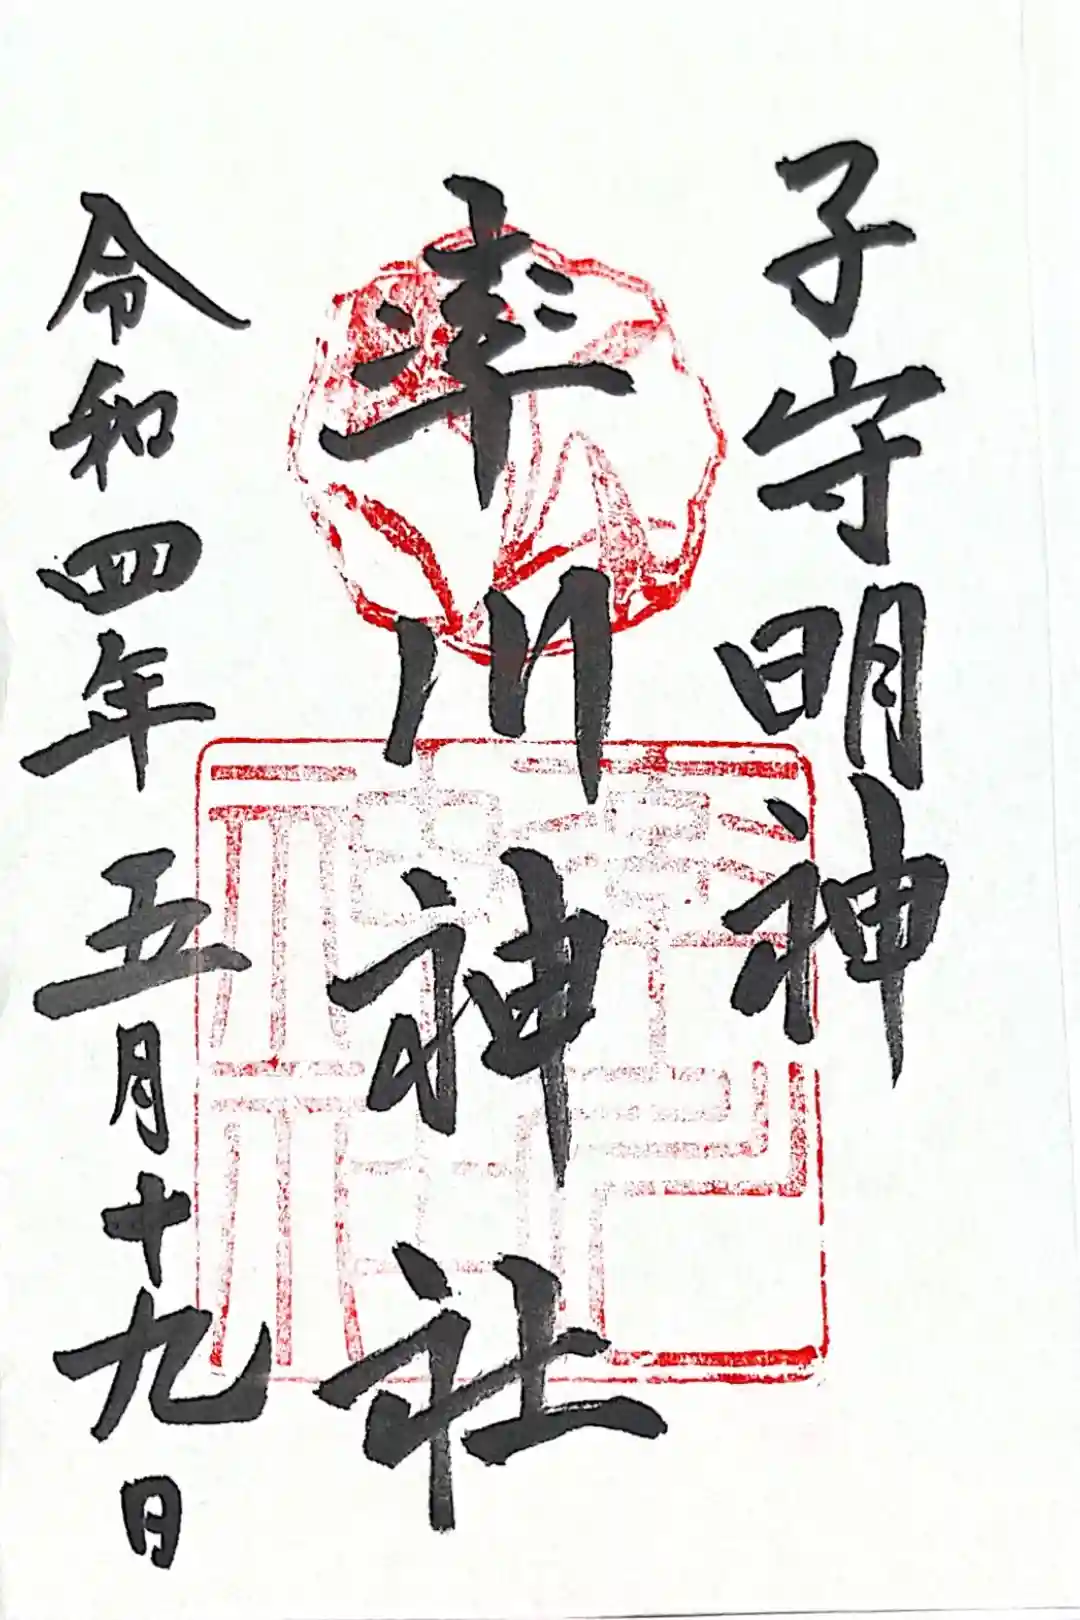 子守明神
率川神社
令和四年五月十九日